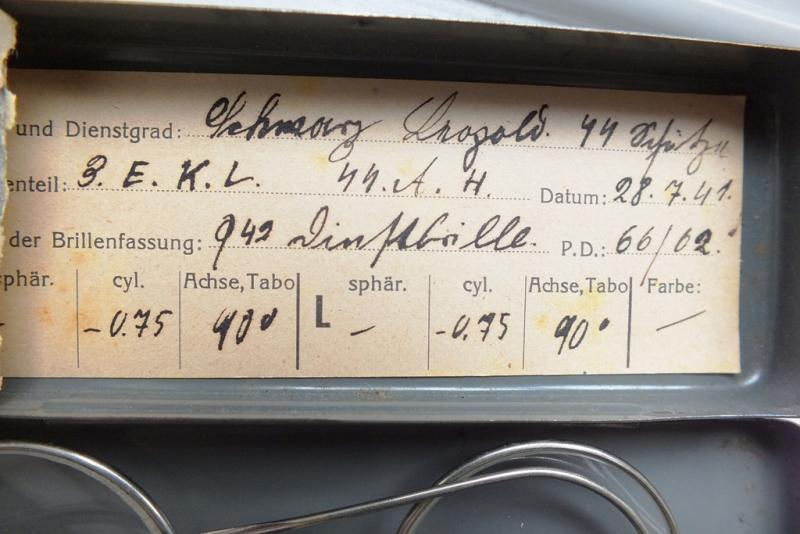 und Dienstgrad: Schwarz Leopold. 44 Schütze
enteil: 3. E. K. L. 44. A. H. Datum: 28. 7. 41.
der Brillenfassung: 942 Dienstbrille. P.D.: 66/62.
phär. cyl. Achse, Tabo L sphär. cyl. Achse, Tabo Farbe:
– -0.75 90° – -0.75 90° –